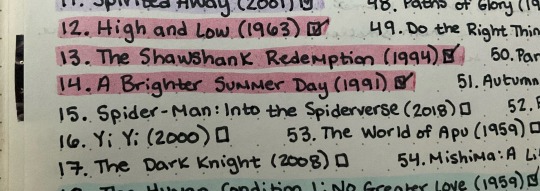 11. Spirited Away (2001)
12. High and Low (1963)
13. The Shawshank Redemption (1994)
14. A Brighter Summer Day (1991)
15. Spider-Man: Into the Spiderverse (2018)
16. Yi Yi (2000)
17. The Dark Knight (2008)
Condition I: No Greater Love (1959)
48. Paths of Glory (19
49. Do the Right Thin
50. Par
51. Autumn
52.
53. The World of Apu (1959)
54. Mishima: A Li